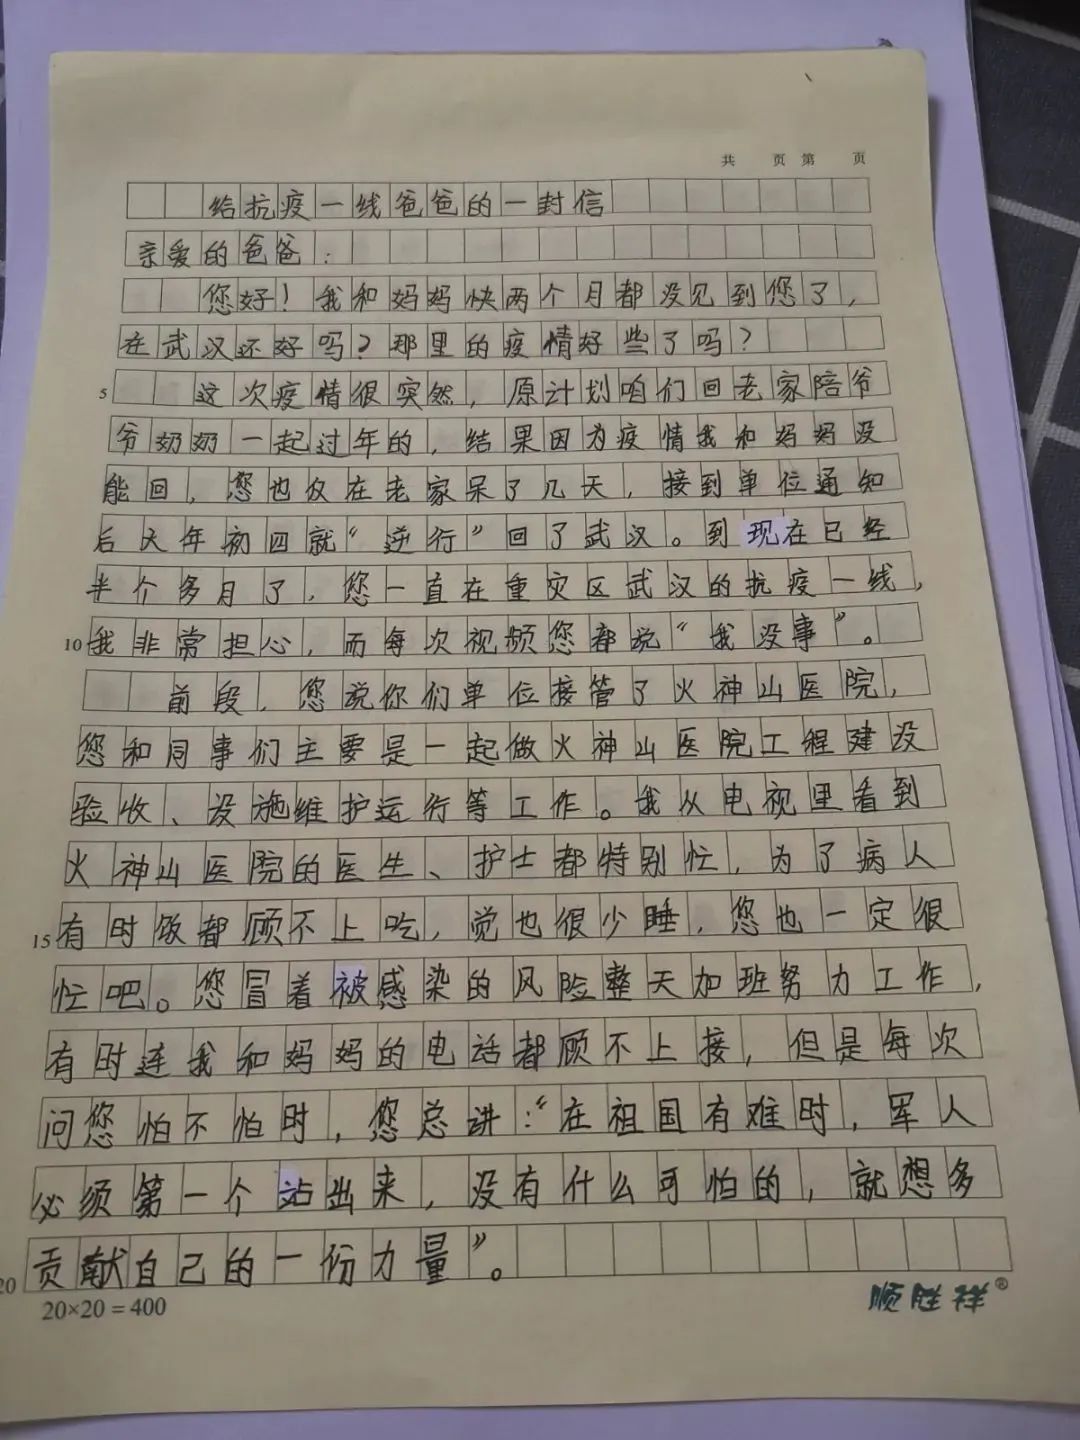 共 页 第 页
给抗疫一线爸爸的一封信
亲爱的爸爸:
您好!我和妈妈快两个月都没见到您了,
在武汉还好吗?那里的疫情好些了吗?
5 这次疫情很突然,原计划咱们回老家陪爷
爷奶奶一起过年的,结果因为疫情我和妈妈没
能回,您也仅在老家呆了几天,接到单位通知
后大年初四就“逆行”回了武汉。到现在已经
半个多月了,您一直在重灾区武汉的抗疫一线,
10 我非常担心,而每次视频您都说“我没事”。
前段,您说你们单位接管了火神山医院,
您和同事们主要是一起做火神山医院工程建设
验收、设施维护运行等工作。我从电视里看到
火神山医院的医生、护士都特别忙,为了病人
15 有时饭都顾不上吃,觉也很少睡,您也一定很
忙吧。您冒着被感染的风险整天加班努力工作,
有时连我和妈妈的电话都顾不上接,但是每次
问您怕不怕时,您总讲:“在祖国有难时,军人
必须第一个站出来,没有什么可怕的,就想多
20 贡献自己的一份力量”。
20×20=400 顺胜祥®